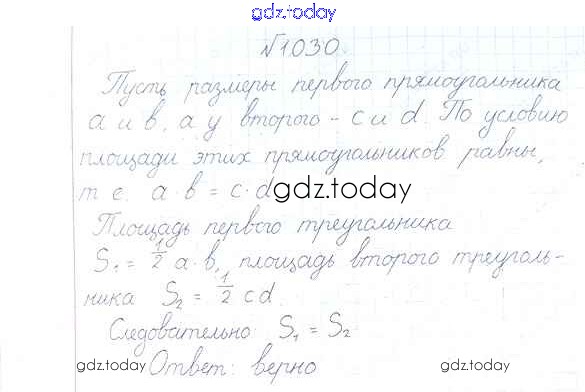 gdz.today
№1030
Пусть размеры первого прямоугольника
a и b, а у второго - c и d. По условию
площади этих прямоугольников равны,
т е. a · b = c · d
gdz.today
Площадь первого треугольника
S₁ = 1/2 a · b, площадь второго треуголь-
ника S₂ = 1/2 cd.
Следовательно: S₁ = S₂
gdz.today
Ответ: верно
gdz.today